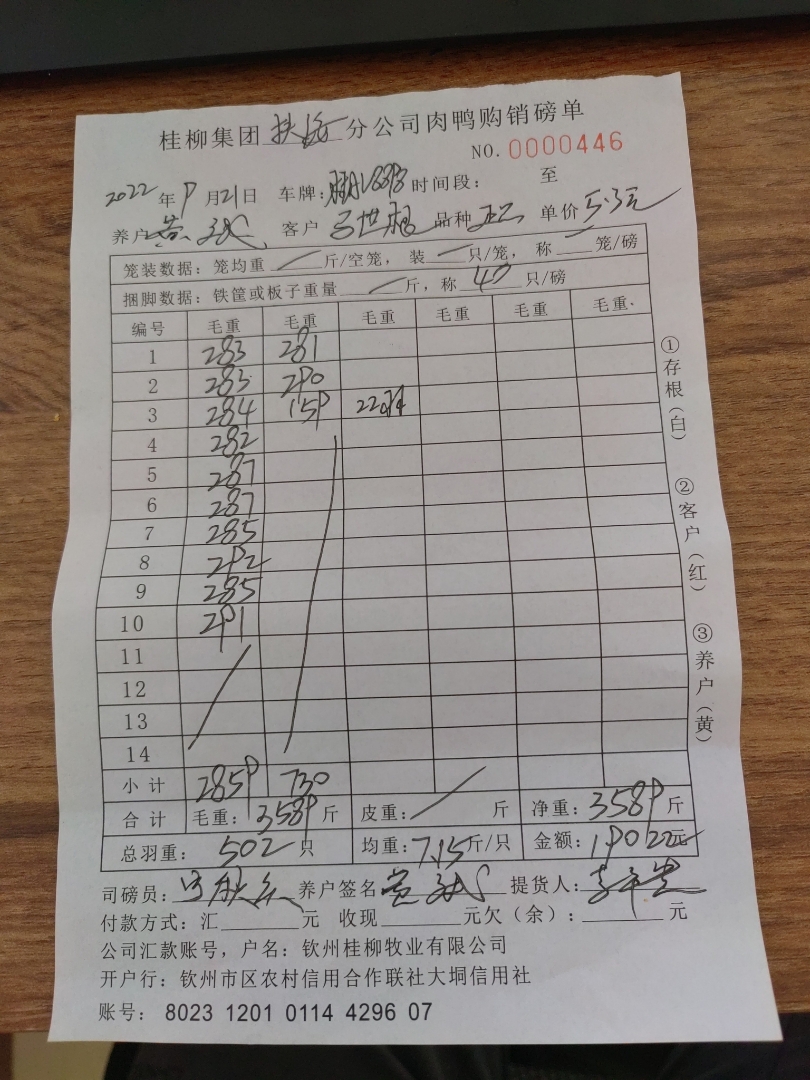 桂柳集团 分公司肉鸭购销磅单
NO. 0000446
2022年9月21日 车牌: 时间段: 至
养户 客户 品种 单价 5.3元
笼装数据: 笼均重 斤/空笼, 装 只/笼, 称 笼/磅
捆脚数据: 铁筐或板子重量 斤, 称 40 只/磅
编号 毛重 毛重 毛重 毛重 毛重 毛重
1 283 281
2 283 290
3 284 159 22只
4 282
5 287
6 287
7 285
8 292
9 285
10 291
11
12
13
14
小计 2859 730
合计 毛重: 3589 斤 皮重: 斤 净重: 3589 斤
总羽重: 502 只 均重: 7.15 斤/只 金额: 19022元
司磅员: 养户签名 提货人:
付款方式: 汇 元 收现 元欠(余): 元
公司汇款账号, 户名: 钦州桂柳牧业有限公司
开户行: 钦州市区农村信用合作联社大垌信用社
账号: 8023 1201 0114 4296 07
①存根(白)
②客户(红)
③养户(黄)